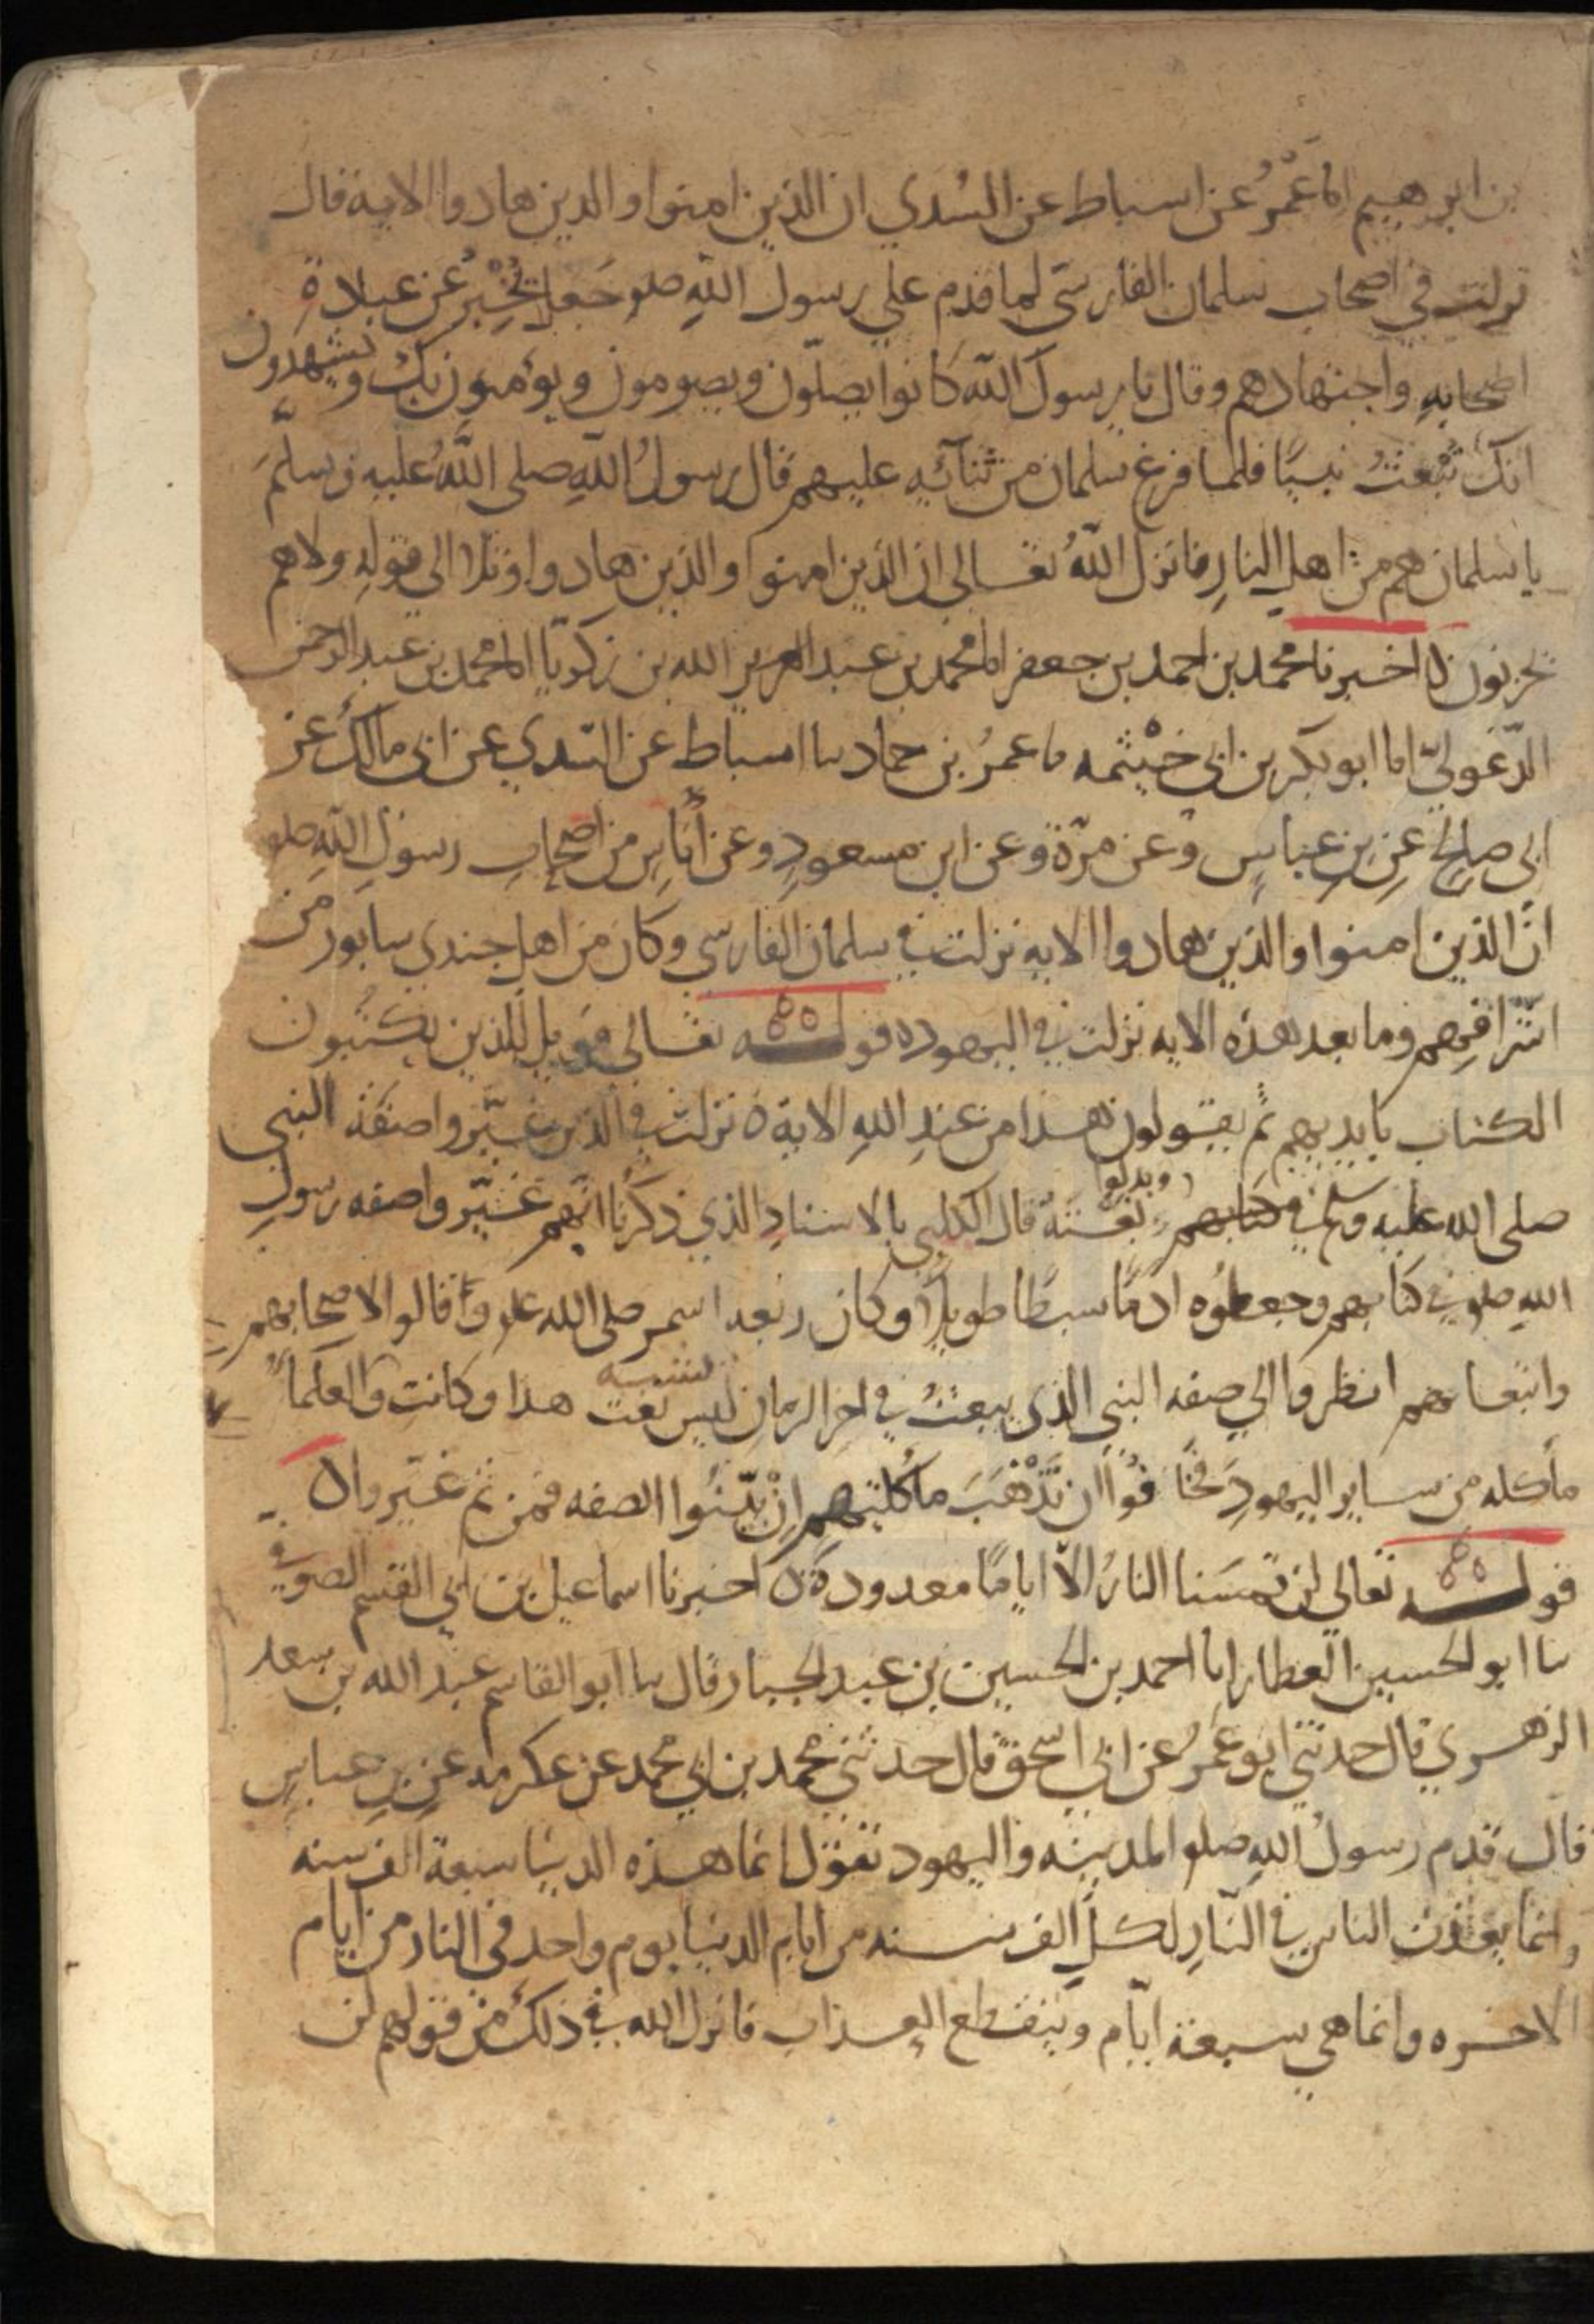 بن ابرهيم انا عمرُ عن اسباط عن السُدي ان الذين امنوا والذين هادوا الايه قال
نزلت في اصحاب سلمان الفارسي لما قدم علي رسول اللّه صلو جَعل يُخْبِرُ عن عبادة
اصحابِهِ واجتهادهم وقال يا رسولَ اللّه كانوا يصلّون ويصومون ويؤمنون بك ويشهدون
انك تُبْعَثُ نبيًا فلما فرغ سلمان من ثنآئِه عليهم قال رسولُ اللّهِ صلى اللّهُ عليه وسلّم
يا سلمان هم من اهلِ النارِ فانزل اللّهُ تعالى ان الذين امنوا والذين هادوا وتلا الى قوله ولا هم
يحزنون ه اخبرنا محمد بن احمد بن جعفر انا محمد بن عبد الله بن زكريّا انا محمد بن عبد الرحمن
الدّغوليّ انا ابو بكر بن ابي خيْثمه ما عمرُ بن حماد سا اسباط عن السّدي عن ابي مالك عن
ابي صالح عن بن عباسٍ وعن مرّة وعن ابن مسعودٍ وعن أُناسٍ من اصحابِ رسولِ اللّهِ صلو
انّ الذين امنوا والذين هادوا الايه نزلت في سلمان الفارسي وكان من اهلِ جندي سابور من
اشرافِهم وما بعد هذه الايه نزلت في اليهود ه قولـــه تعالى فويل للذين يكتبون
الكتاب بايديهم ثم يقولون هذا من عندِ اللهِ الاية ه نزلت في الذين غيّروا صفة النبي
صلى الله عليه وسلم في كتابهم وبدلوا نعْتهُ قال الكلبي بالاسنادِ الذي ذكرنا انّهم غيّروا صفه رسولِ
اللهِ صلو في كتابهم وجعلُوه ادمًا سبطًا طويلًا وكان ربعه اسمر صلى الله عليه وقالوا لاصحابهم
واتباعهم انظروا الي صفه النبي الذي يبعثُ في اخر الزمان ليس يشبه نعت هذا وكانت والعلما
مأكله من سايرِ اليهودِ فخافُوا ان تَذْهَبَ مأكلتهم اِنْ بيّنُوا الصفه فمن ثم غيّروا ه
قولـــه تعالى لن تمسَنا النارُ الّا ايامًا معدودةً ه اخبرنا اسماعيل بن ابي القسم الصوفي
سا ابو الحسين العطار انا احمد بن الحسين بن عبد الجبار قال سا ابو القاسم عبد الله بن سعد
الزهري قال حدثني ابو عَمرُ عن ابي اسحق قال حدثني محمد بن ابي محمد عن عكرمه عن بن عباسٍ
قال قدم رسولُ اللهِ صلو المدينه واليهود تقول انما هذه الدنيا سبعة الف سنه
وانما يعذب الناس في النّارِ لكلِ الف سنه من ايامِ الدنيا يوم واحد في النار من ايام
الاخره وانما هي سبعة ايّام وينقطع العذاب فانزل الله في ذلك من قولهم لن